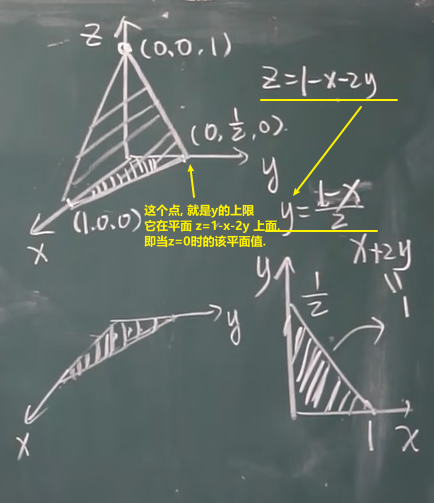 z
(0,0,1)
z=1-x-2y
(0,1/2,0).
y
(1.0.0)
x
这个点, 就是y的上限
它在平面 z=1-x-2y 上面.
即当z=0时的该平面值.
y=(1-x)/2
x+2y
=
1
y
1/2
y
x
1
x